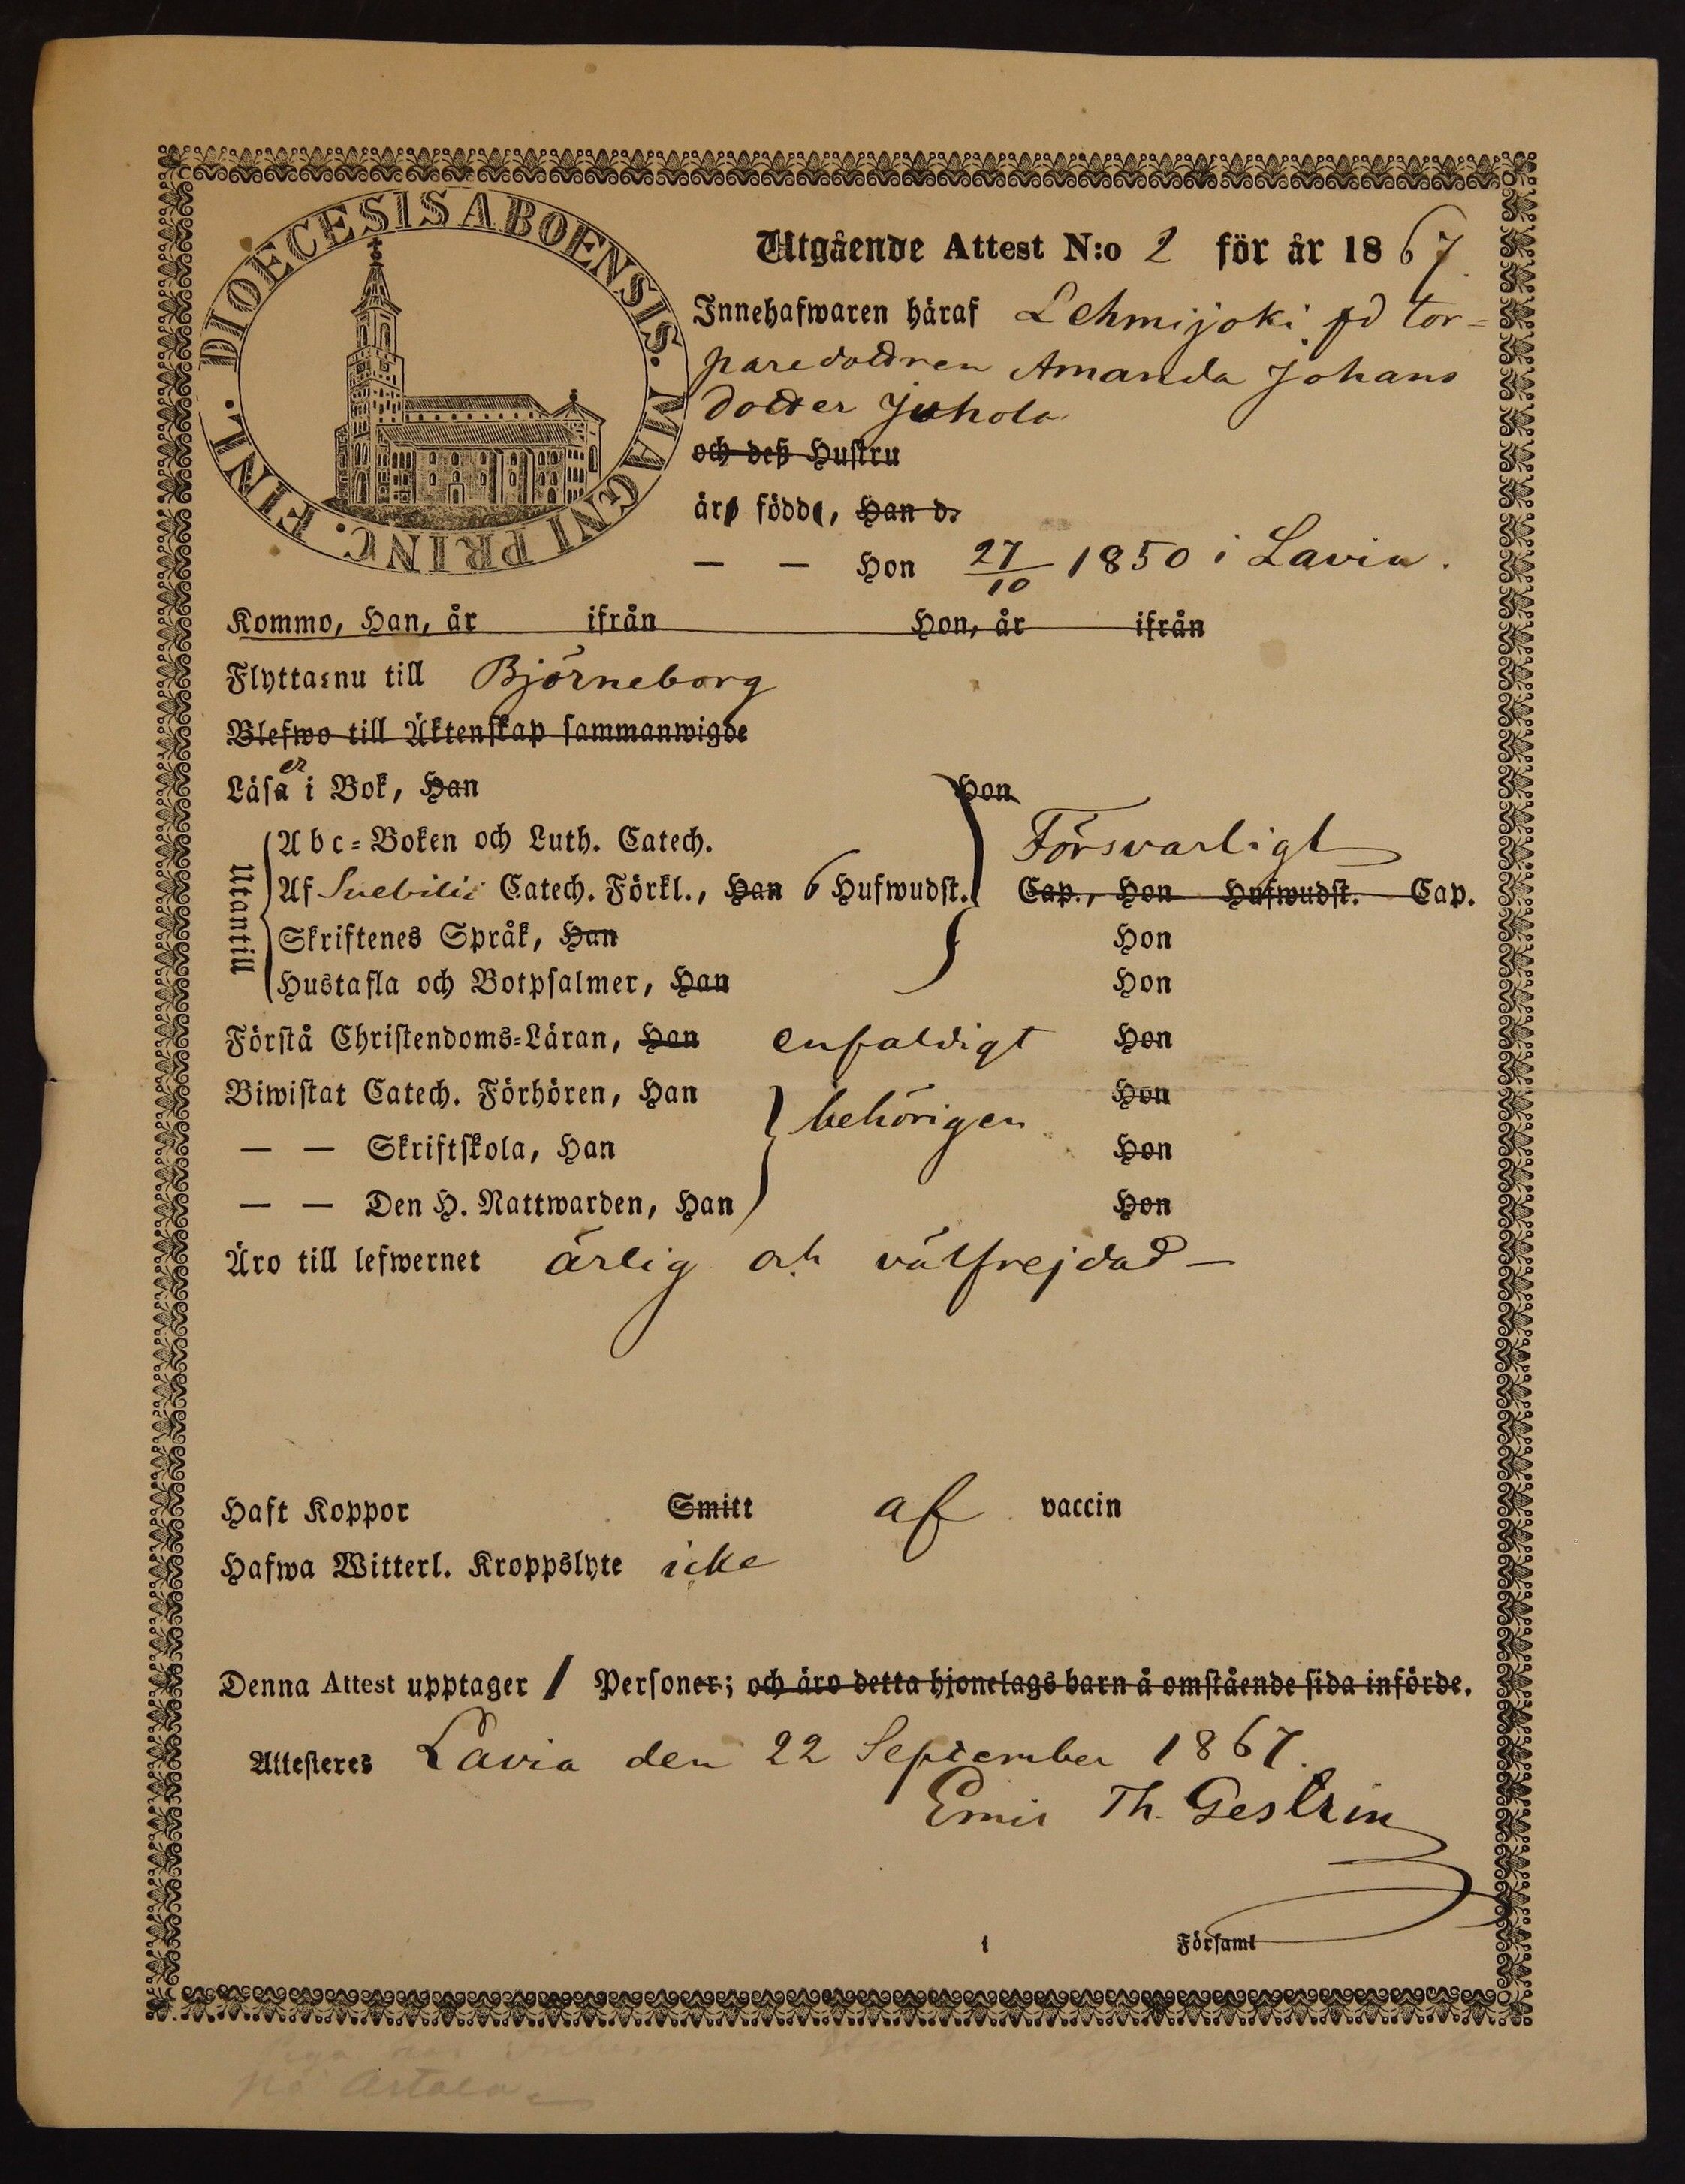 DIOECESIS ABOENSIS. MAGNI PRINC. FINL.
Utgående Attest N:o 2 för år 1867.
Innehafwaren häraf Lehmijoki fd tor=
paredottren Amanda Johans
dotter Juhola
och deß Hustru
äro födde, Han d.
— — Hon 27/10 1850 i Lavia.
Kommo, Han, år ifrån Hon, år ifrån
Flytta nu till Björneborg
Blefwo till Äktenskap sammanwigde
Läsa er i Bok, Han Hon
Utantill
Abc=Boken och Luth. Catech. Försvarligt
Af Svebilii Catech. Förkl., Han 6 Hufwudst. Cap., Hon Hufwudst. Cap.
Skriftenes Språk, Han Hon
Hustafla och Botpsalmer, Han Hon
Förstå Christendoms=Läran, Han enfaldigt Hon
Biwistat Catech. Förhören, Han behörigen Hon
— — Skriftskola, Han Hon
— — Den H. Nattwarden, Han Hon
Äro till lefwernet ärlig och välfrejdad —
Haft Koppor Smitt af vaccin
Hafwa Witterl. Kroppslyte icke
Denna Attest upptager 1 Personer; och äro detta hjonelags barn å omstående sida införde.
Attesteres Lavia den 22 September 1867.
Emil Th. Gestrin
i Församl
på